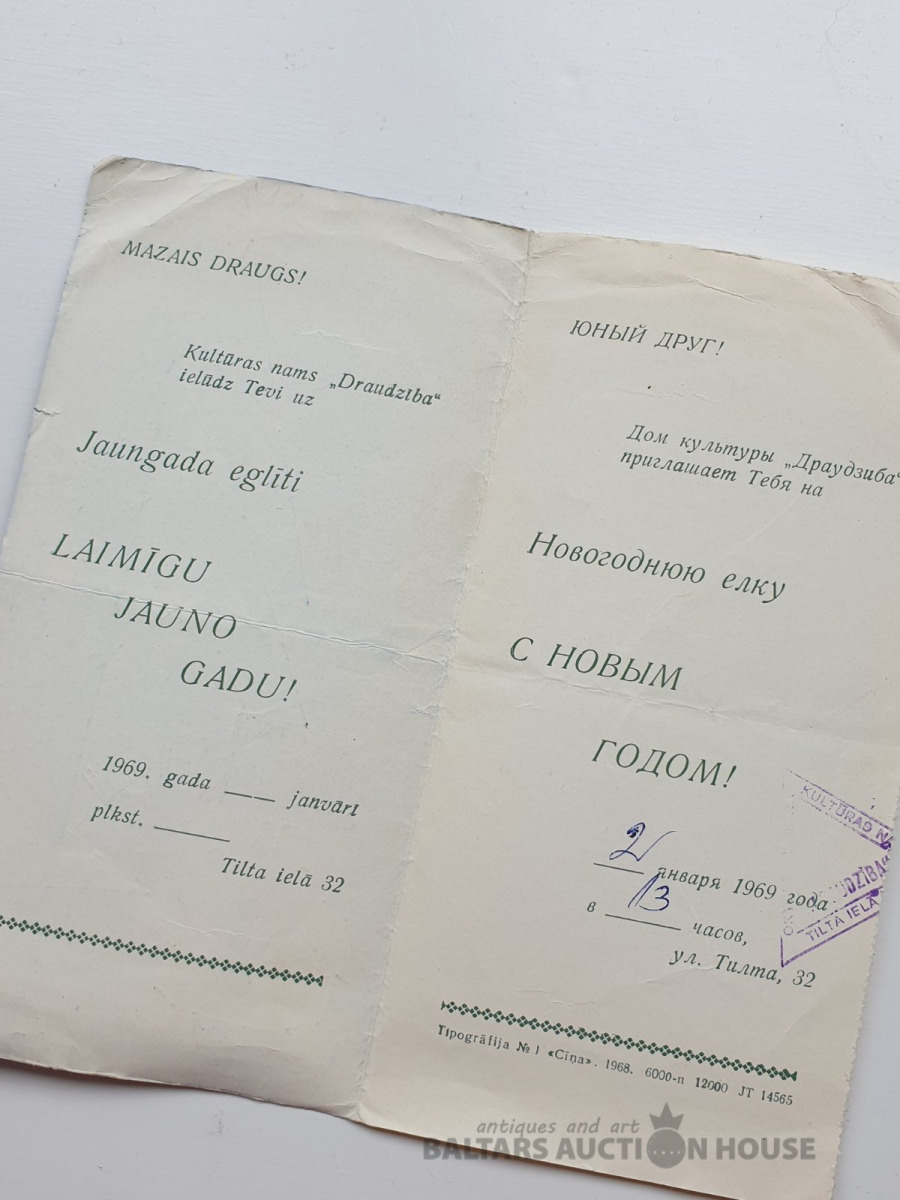 MAZAIS DRAUGS!
Kultūras nams „Draudzība“
ielūdz Tevi uz
Jaungada eglīti
LAIMĪGU
JAUNO
GADU!
1969. gada ___ janvārī
plkst. ___
Tilta ielā 32
ЮНЫЙ ДРУГ!
Дом культуры „Драудзиба“
приглашает Тебя на
Новогоднюю елку
С НОВЫМ
ГОДОМ!
2 января 1969 года
в 13 часов,
ул. Тилта, 32
KULTŪRAS
TILTA IELĀ
Tipogrāfija № 1 «Cīņa». 1968. 6000-n 12000 JT 14565
antiques and art
BALTARS AUCTION HOUSE